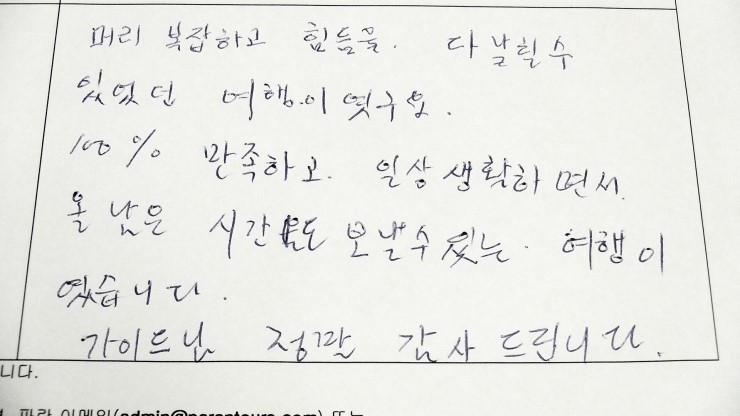 머리 복잡하고 힘듬을. 다 날릴 수
있었던 여행.이 였구요.
100 % 만족하고. 일상 생활하면서.
올 남은 시간도 보낼수 있는. 여행이
였습니다.
가이드님 정말 감사 드립니다.
니다.
파란 이메일(admin@parantours.com) 또는